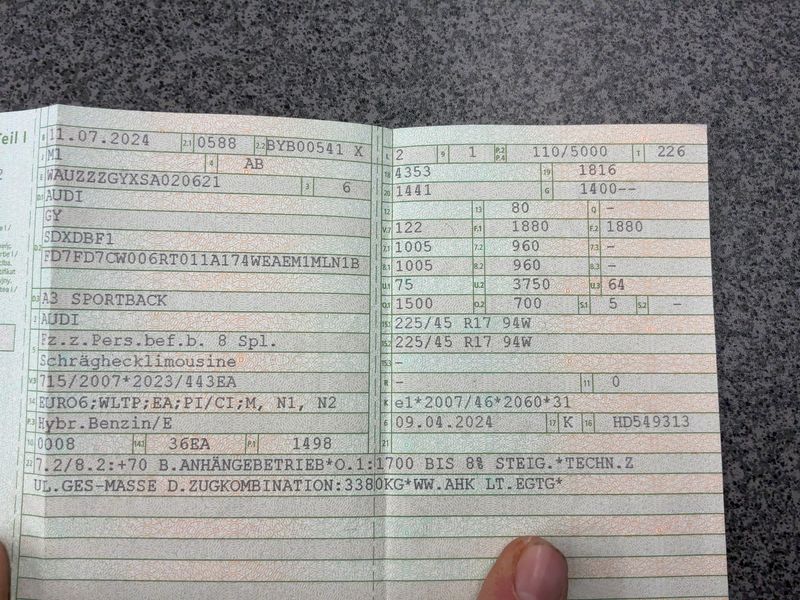 Teil I
B 11.07.2024 2.1 0588 2.2 BYB00541 X
J M1 4 AB
E WAUZZZGYXSA020621 3 6
D.1 AUDI
GY
D.2 SDXDBF1
FD7FD7CW006RT011AI74WEAEM1MLN1B
D.3 A3 SPORTBACK
2 AUDI
5 Fz.z.Pers.bef.b. 8 Spl.
Schräghecklimousine
V.9 715/2007*2023/443EA
14 EURO6;WLTP;EA;PI/CI;M, N1, N2
P.3 Hybr.Benzin/E
10 0008 14.1 36EA P.1 1498
22 7.2/8.2:+70 B.ANHÄNGEBETRIEB*O.1:1700 BIS 8% STEIG.*TECHN.Z
UL.GES-MASSE D.ZUGKOMBINATION:3380KG*WW.AHK LT.EGTG*
L 2 9 1 P.2 P.4 110/5000 T 226
18 4353 19 1816
20 1441 G 1400--
12 13 80 Q -
V.7 122 F.1 1880 F.2 1880
7.1 1005 7.2 960 7.3 -
8.1 1005 8.2 960 8.3 -
U.1 75 U.2 3750 U.3 64
O.1 1500 O.2 700 S.1 5 S.2 -
15.1 225/45 R17 94W
15.2 225/45 R17 94W
15.3 -
R - 11 0
K e1*2007/46*2060*31
6 09.04.2024 17 K 16 HD549313
21